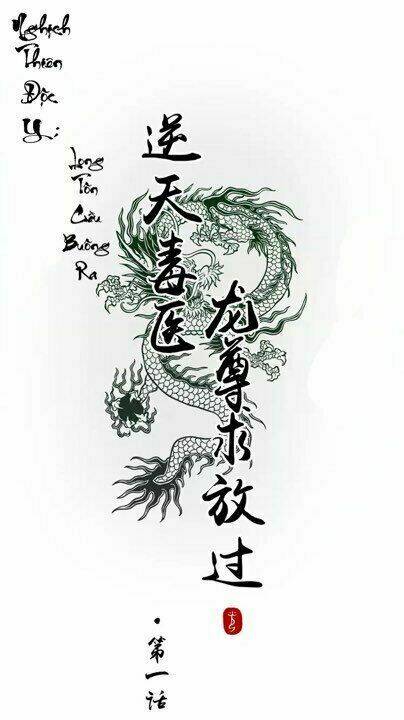 Nghịch
Thiên
Độc
Y:
Long
Tôn
Cầu
Buông
Ra
逆天毒医
龙尊求放过
·第一话